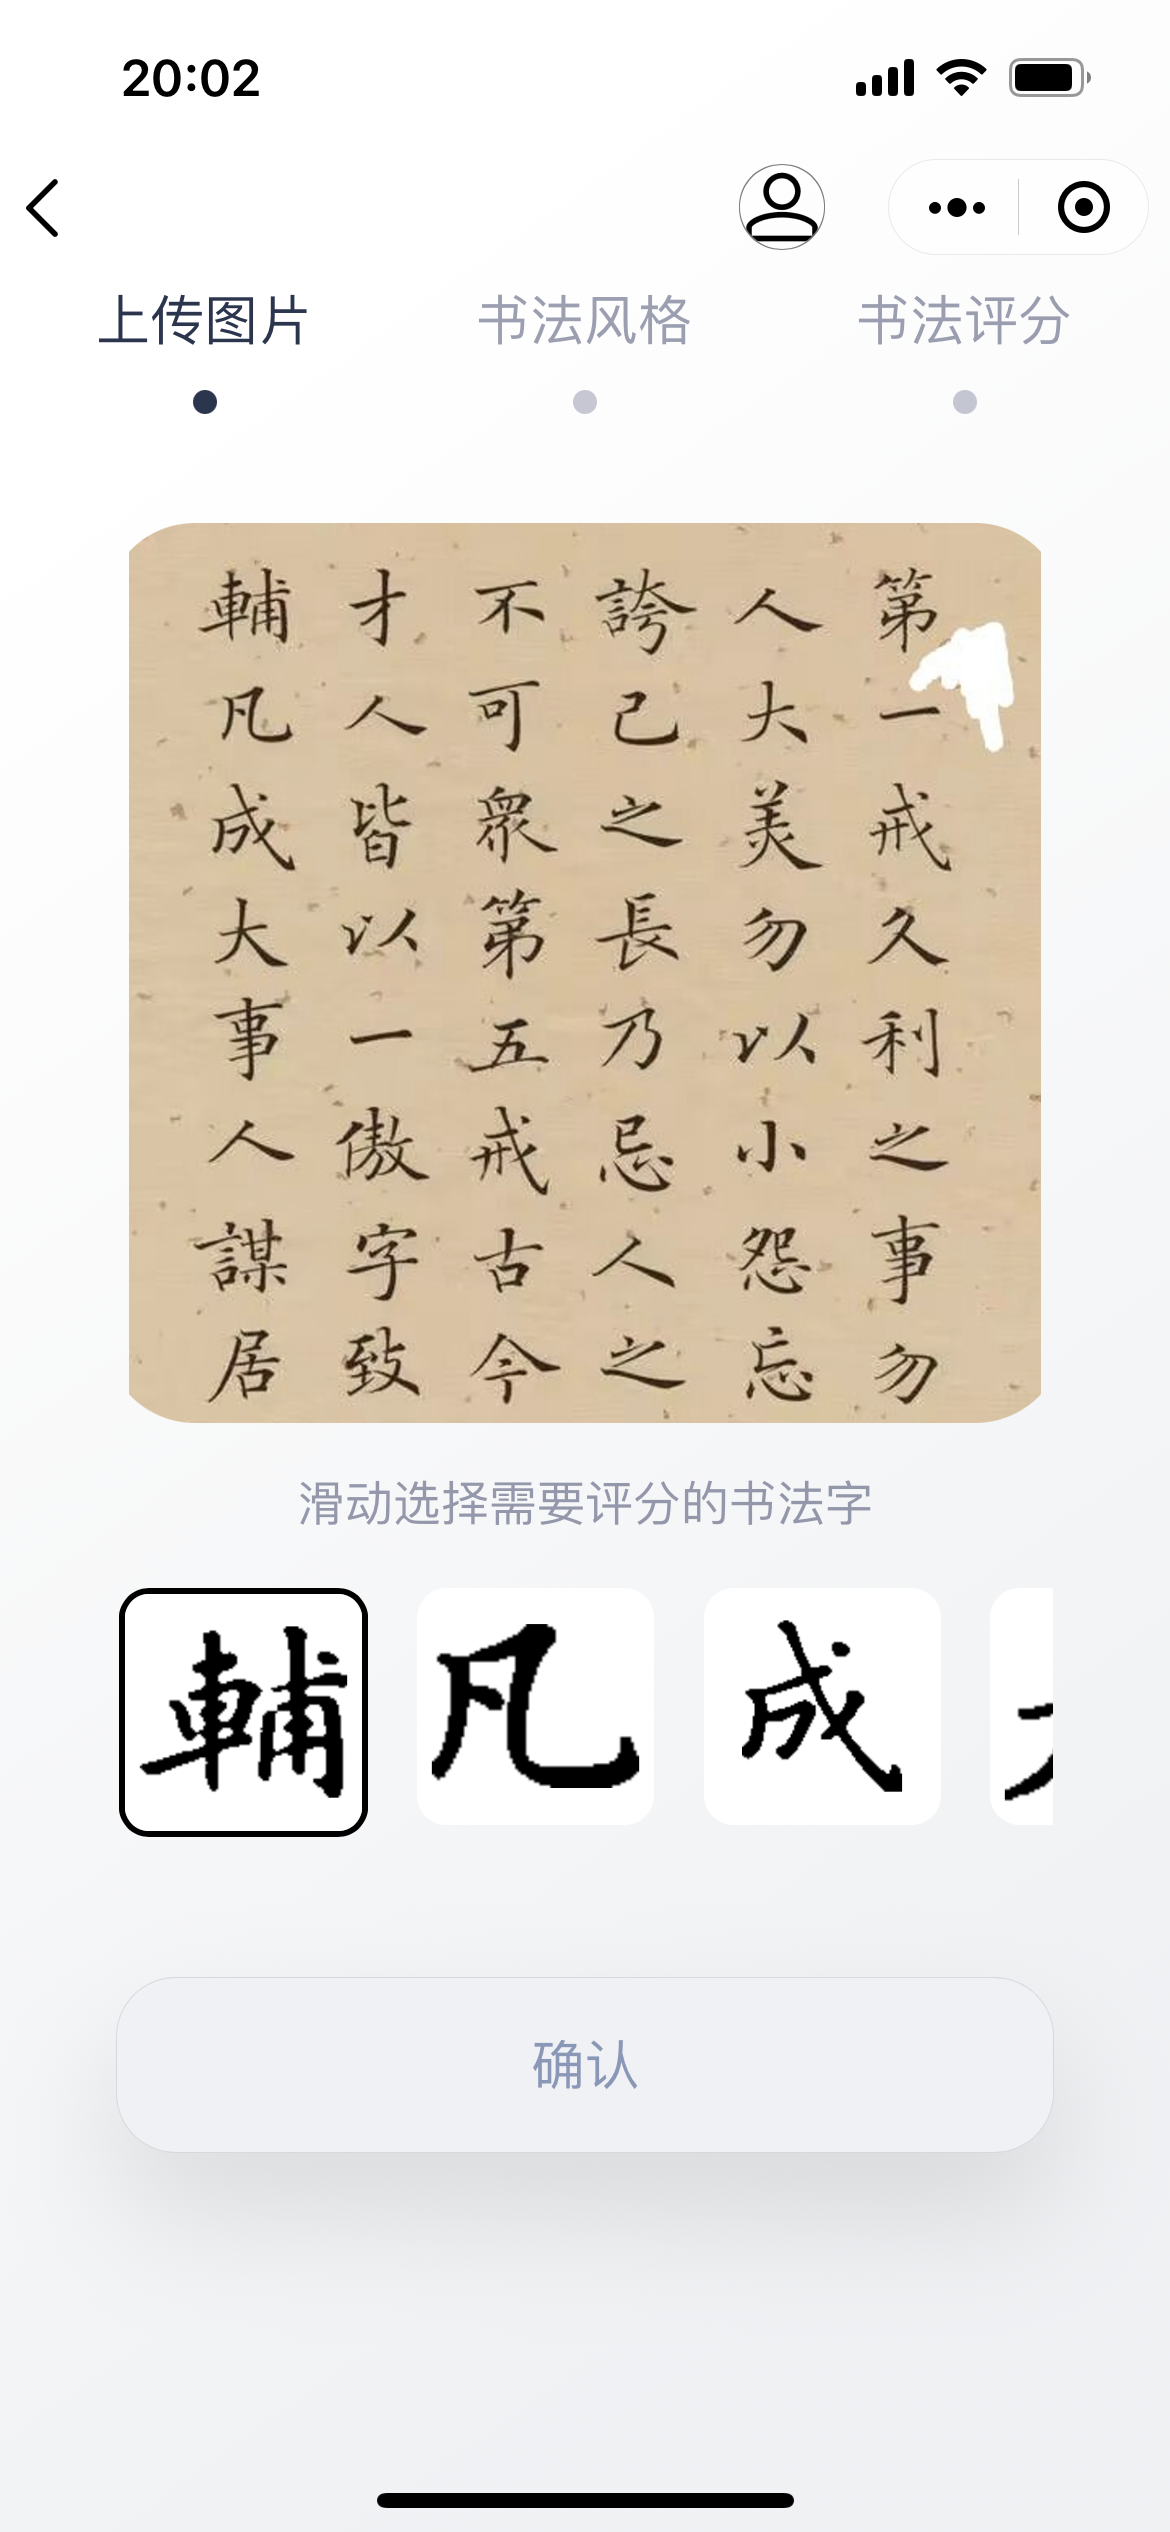 20:02
上传图片
书法风格
书法评分
第一戒久利之事勿
人大美勿以小怨忘
誇己之長乃忌人之
不可衆第五戒古今
才人皆以一傲字致
輔凡成大事人謀居
滑动选择需要评分的书法字
輔
凡
成
确认